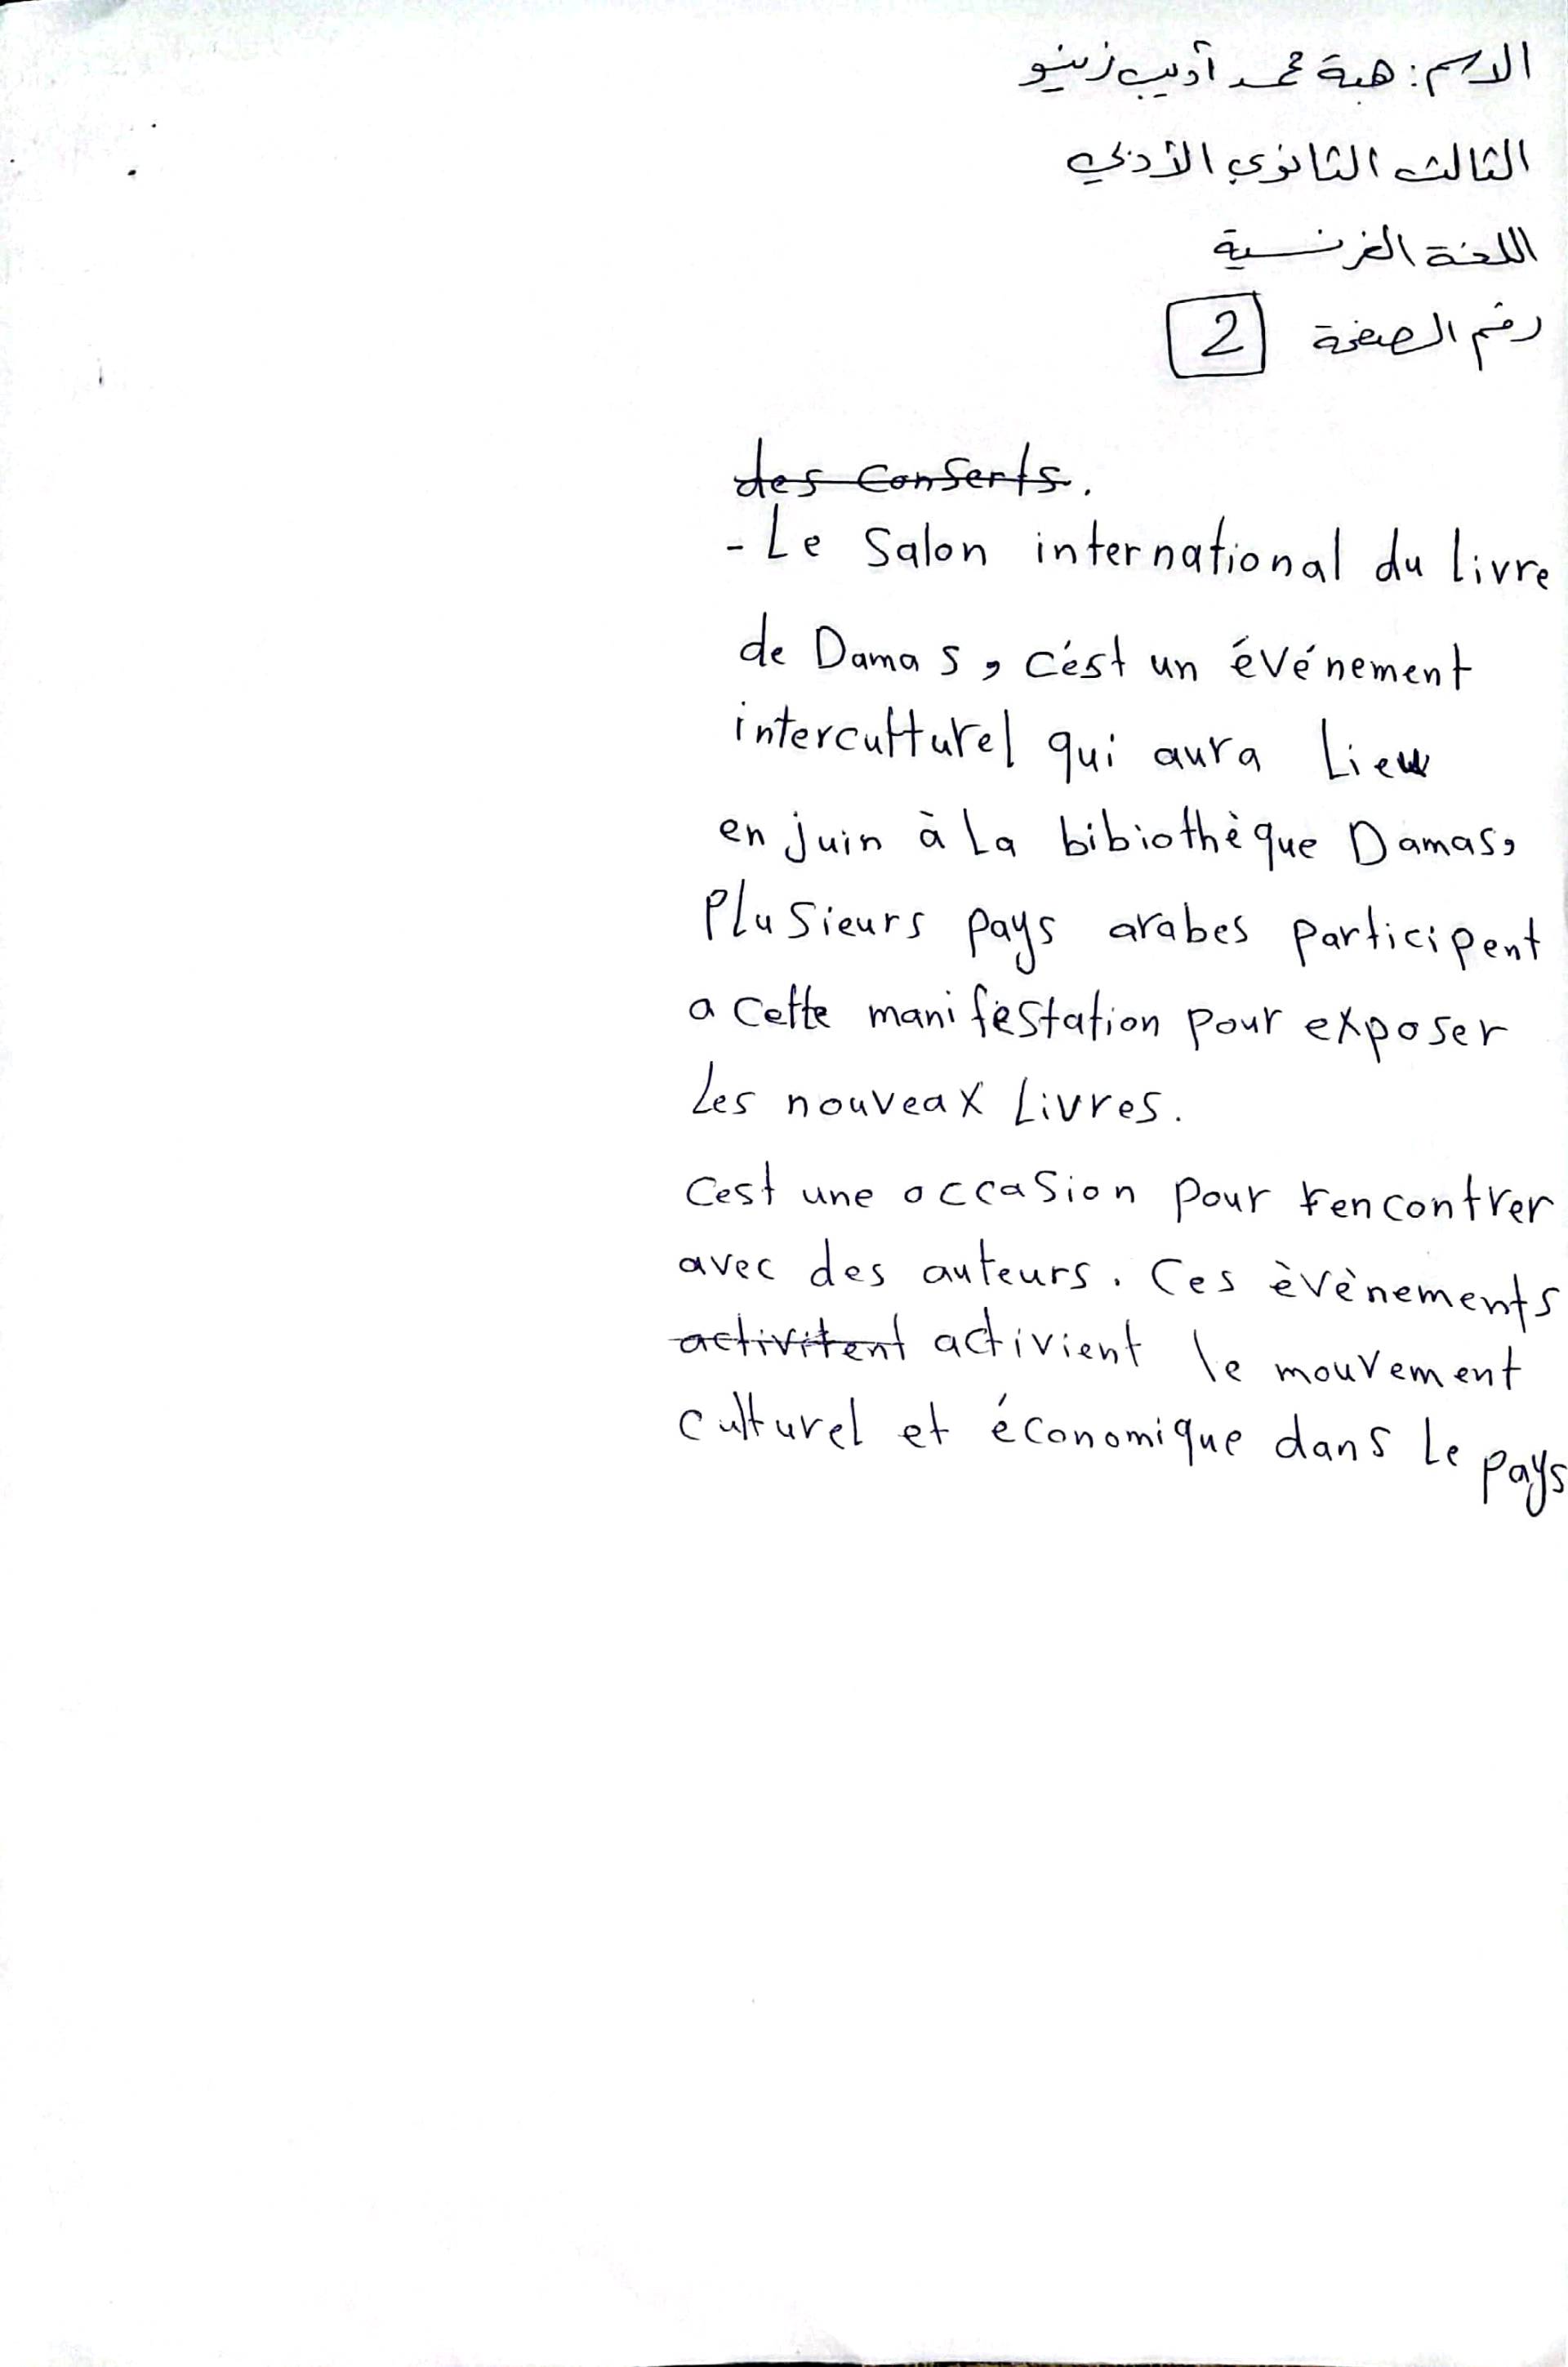 الاسم: هبة محمد أديب زينو
الثالث الثانوي الأدبي
اللغة الفرنسية
رقم الصفحة 2
des Conserts.
- Le Salon international du livre
de Damas, c'ést un événement
interculturel qui aura Lieu
en juin à La bibiothèque Damas,
Plusieurs pays arabes participent
a cette manifestation pour exposer
Les nouveax Livres.
Cest une occasion pour rencontrer
avec des auteurs. Ces èvènements
activitent activient le mouvement
culturel et économique dans Le pays